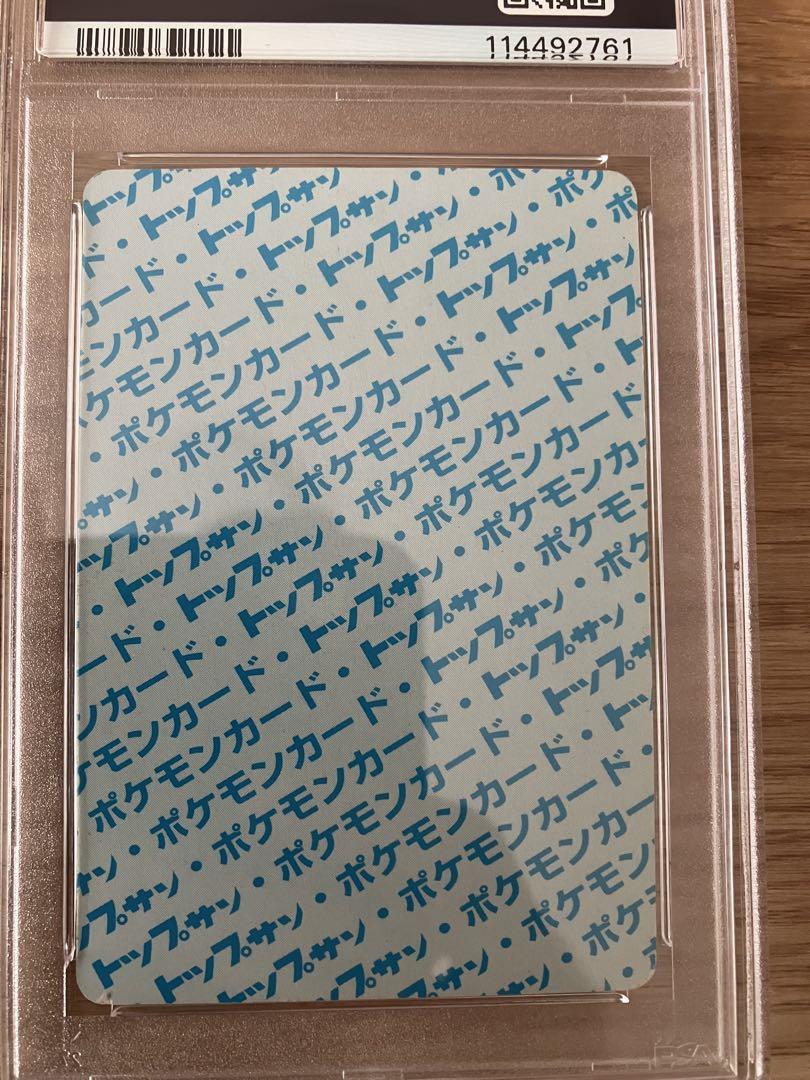 114492761
トップサ
ド・トップサン・
カード・トップサン・
ンカード・トップサン・
ケモンカード・トップサン・ポ
ポケモンカード・トップサン・ポケ
・ポケモンカード・トップサン・ポ
サン・ポケモンカード・トップサン
ップサン・ポケモンカード・トップ
・トップサン・ポケモンカード・ト
・トップサン・ポケモンカード
ード・トップサン・ポケモンカー
ンカード・トップサン・ポケモン
ケモンカード・トップサン・ポケ
ポケモンカード・トップサン・
・ポケモンカード・トップサ
サン・ポケモンカード・トッ
ップサン・ポケモンカード・
トップサン・ポケモンカード
トップサン・ポケモンカー
トップサン・ポケモン
ップサン・ポケ
PSA